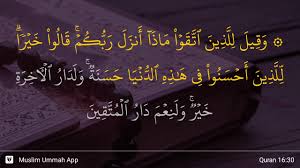 ۞ وَقِيلَ لِلَّذِينَ ٱتَّقَوْا۟ مَاذَآ أَنزَلَ رَبُّكُمْ ۚ قَالُوا۟ خَيْرًا ۗ
لِّلَّذِينَ أَحْسَنُوا۟ فِى هَـٰذِهِ ٱلدُّنْيَا حَسَنَةٌ ۚ وَلَدَارُ ٱلْـَٔاخِرَةِ
خَيْرٌ ۚ وَلَنِعْمَ دَارُ ٱلْمُتَّقِينَ
Muslim Ummah App
Quran 16:30